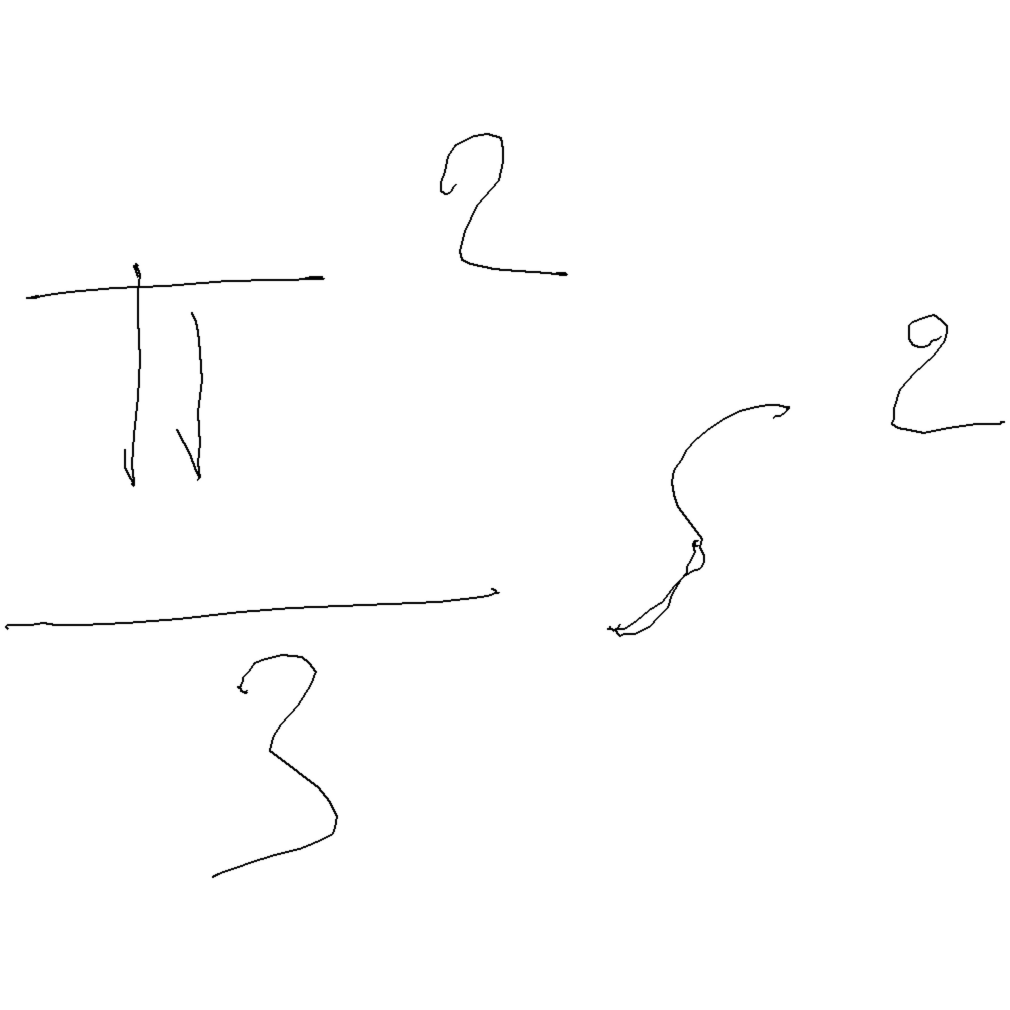 \frac{\pi^2}{3} s^2